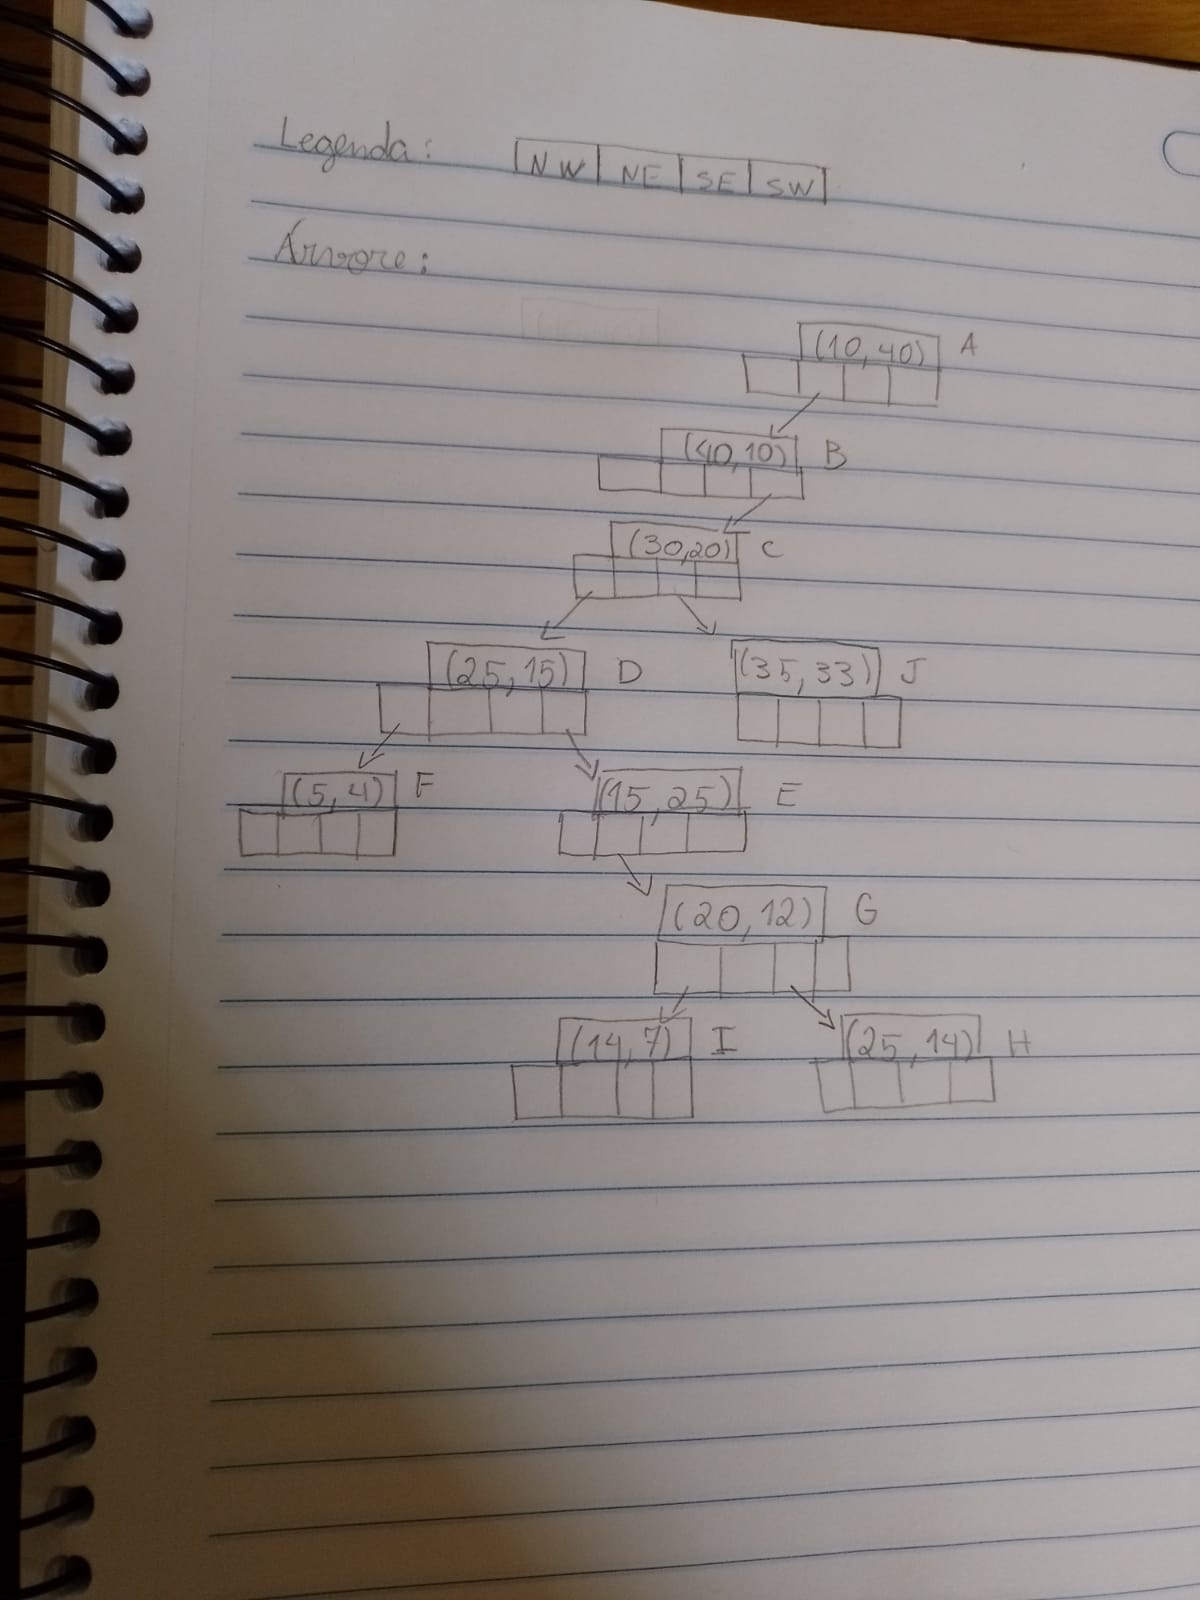 Legenda: NW NE SE SW
Árvore:
(10,40) A
(40,10) B
(30,20) C
(25,15) D (35,33) J
(5,4) F (15,25) E
(20,12) G
(14,7) I (25,14) H